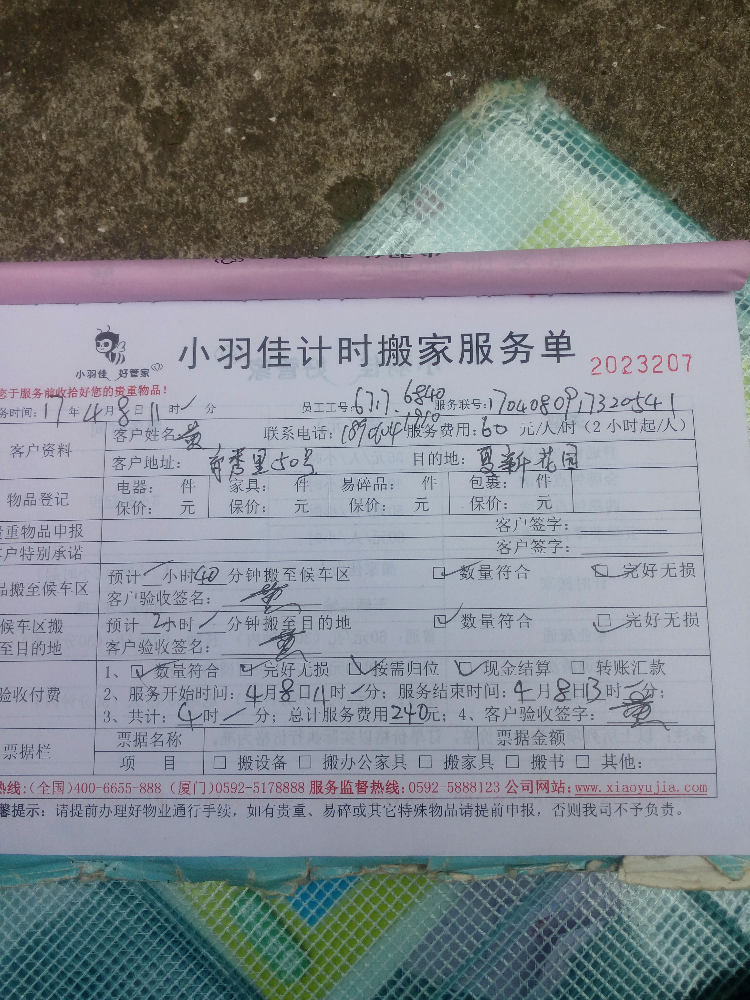 小羽佳 好管家
小羽佳计时搬家服务单 2023207
您于服务前收拾好您的贵重物品!
务时间:17年4月8日11时/分 员工工号:6717.6840 服务联号:1704080917320541
客户资料
客户姓名 黄 联系电话: 服务费用:60元/人/时(2小时起/人)
客户地址: 里50号 目的地:夏新花园
物品登记
电器: 件 家具: 件 易碎品: 件 包裹:1件
保价: 元 保价: 元 保价: 元 保价: 元
贵重物品申报 客户签字:
客户特别承诺 客户签字:
品搬至候车区
预计/小时40分钟搬至候车区 ☑数量符合 ☑完好无损
客户验收签名:黄
候车区搬至目的地
预计2小时/分钟搬至目的地 ☑数量符合 ☑完好无损
客户验收签名:黄
验收付费
1、☑数量符合 ☑完好无损 ☑按需归位 ☑现金结算 ☐转账汇款
2、服务开始时间:4月8日11时/分;服务结束时间:4月8日13时/分;
3、共计:4时/分;总计服务费用240元;4、客户验收签字:黄
票据栏
票据名称 票据金额
项 目 ☐搬设备 ☐搬办公家具 ☐搬家具 ☐搬书 ☐其他:
热线:(全国)400-6655-888 (厦门)0592-5178888 服务监督热线:0592-5888123 公司网站:www.xiaoyujia.com
馨提示:请提前办理好物业通行手续,如有贵重、易碎或其它特殊物品请提前申报,否则我司不予负责。